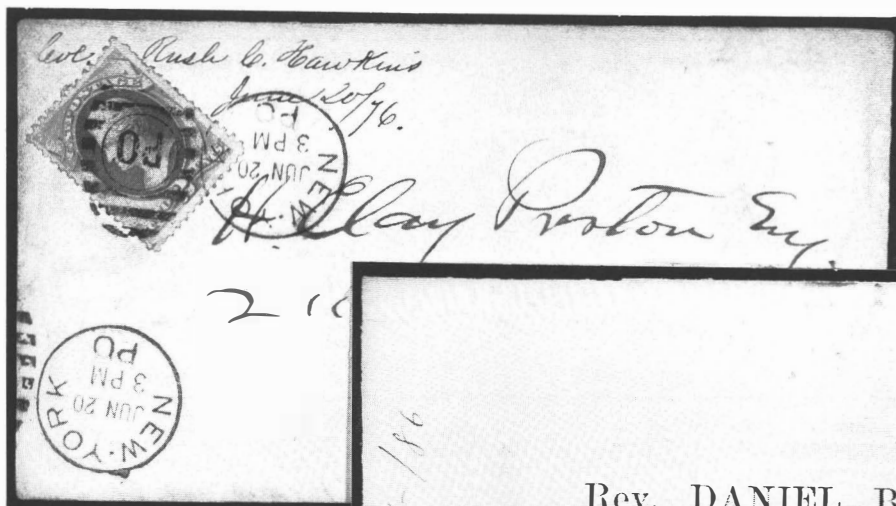 Col. Rush C. Hawkins
June 20/76.
POSTAGE
PO
NEW-YORK
JUN 20
3 PM
PO
H. Clay Preston Esq.
2
NEW-YORK
JUN 20
3 PM
PO
186
Rev. DANIEL